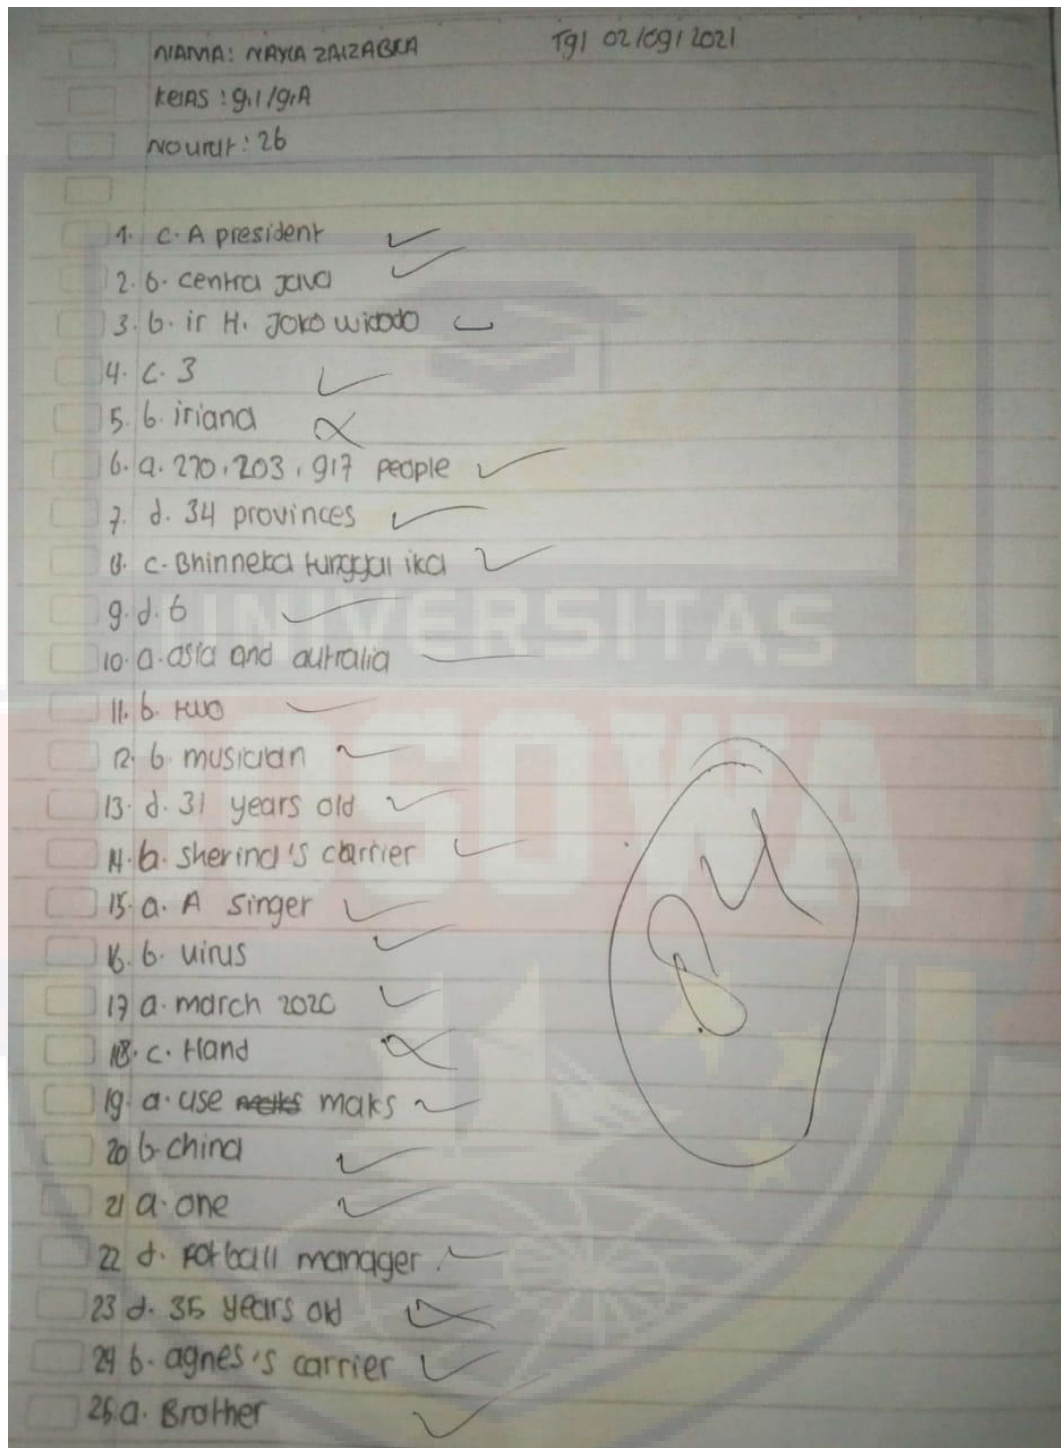 NAMA: NAYLA ZAIZABILA Tgl 02/09/2021
KelAS : 9.1/9.A
No urut : 26
1. c. A president
2. b. centra java
3. b. ir H. Joko widodo
4. c. 3
5. b. iriana
6. a. 270.203.917 people
7. d. 34 provinces
8. c. Bhinneka tunggal ika
9. d. 6
UNIVERSITAS
10. a. asia and autralia
11. b. two
BOSOWA
12. b. musician
13. d. 31 years old
14. b. sherina's carrier
84
15. a. A singer
16. b. virus
17 a. march 2020
18. c. Hand
19. a. use maks
20 b. china
21 a. one
22 d. Fotball manager
23 d. 35 years old
24 b. agnes's carrier
25. a. Brother